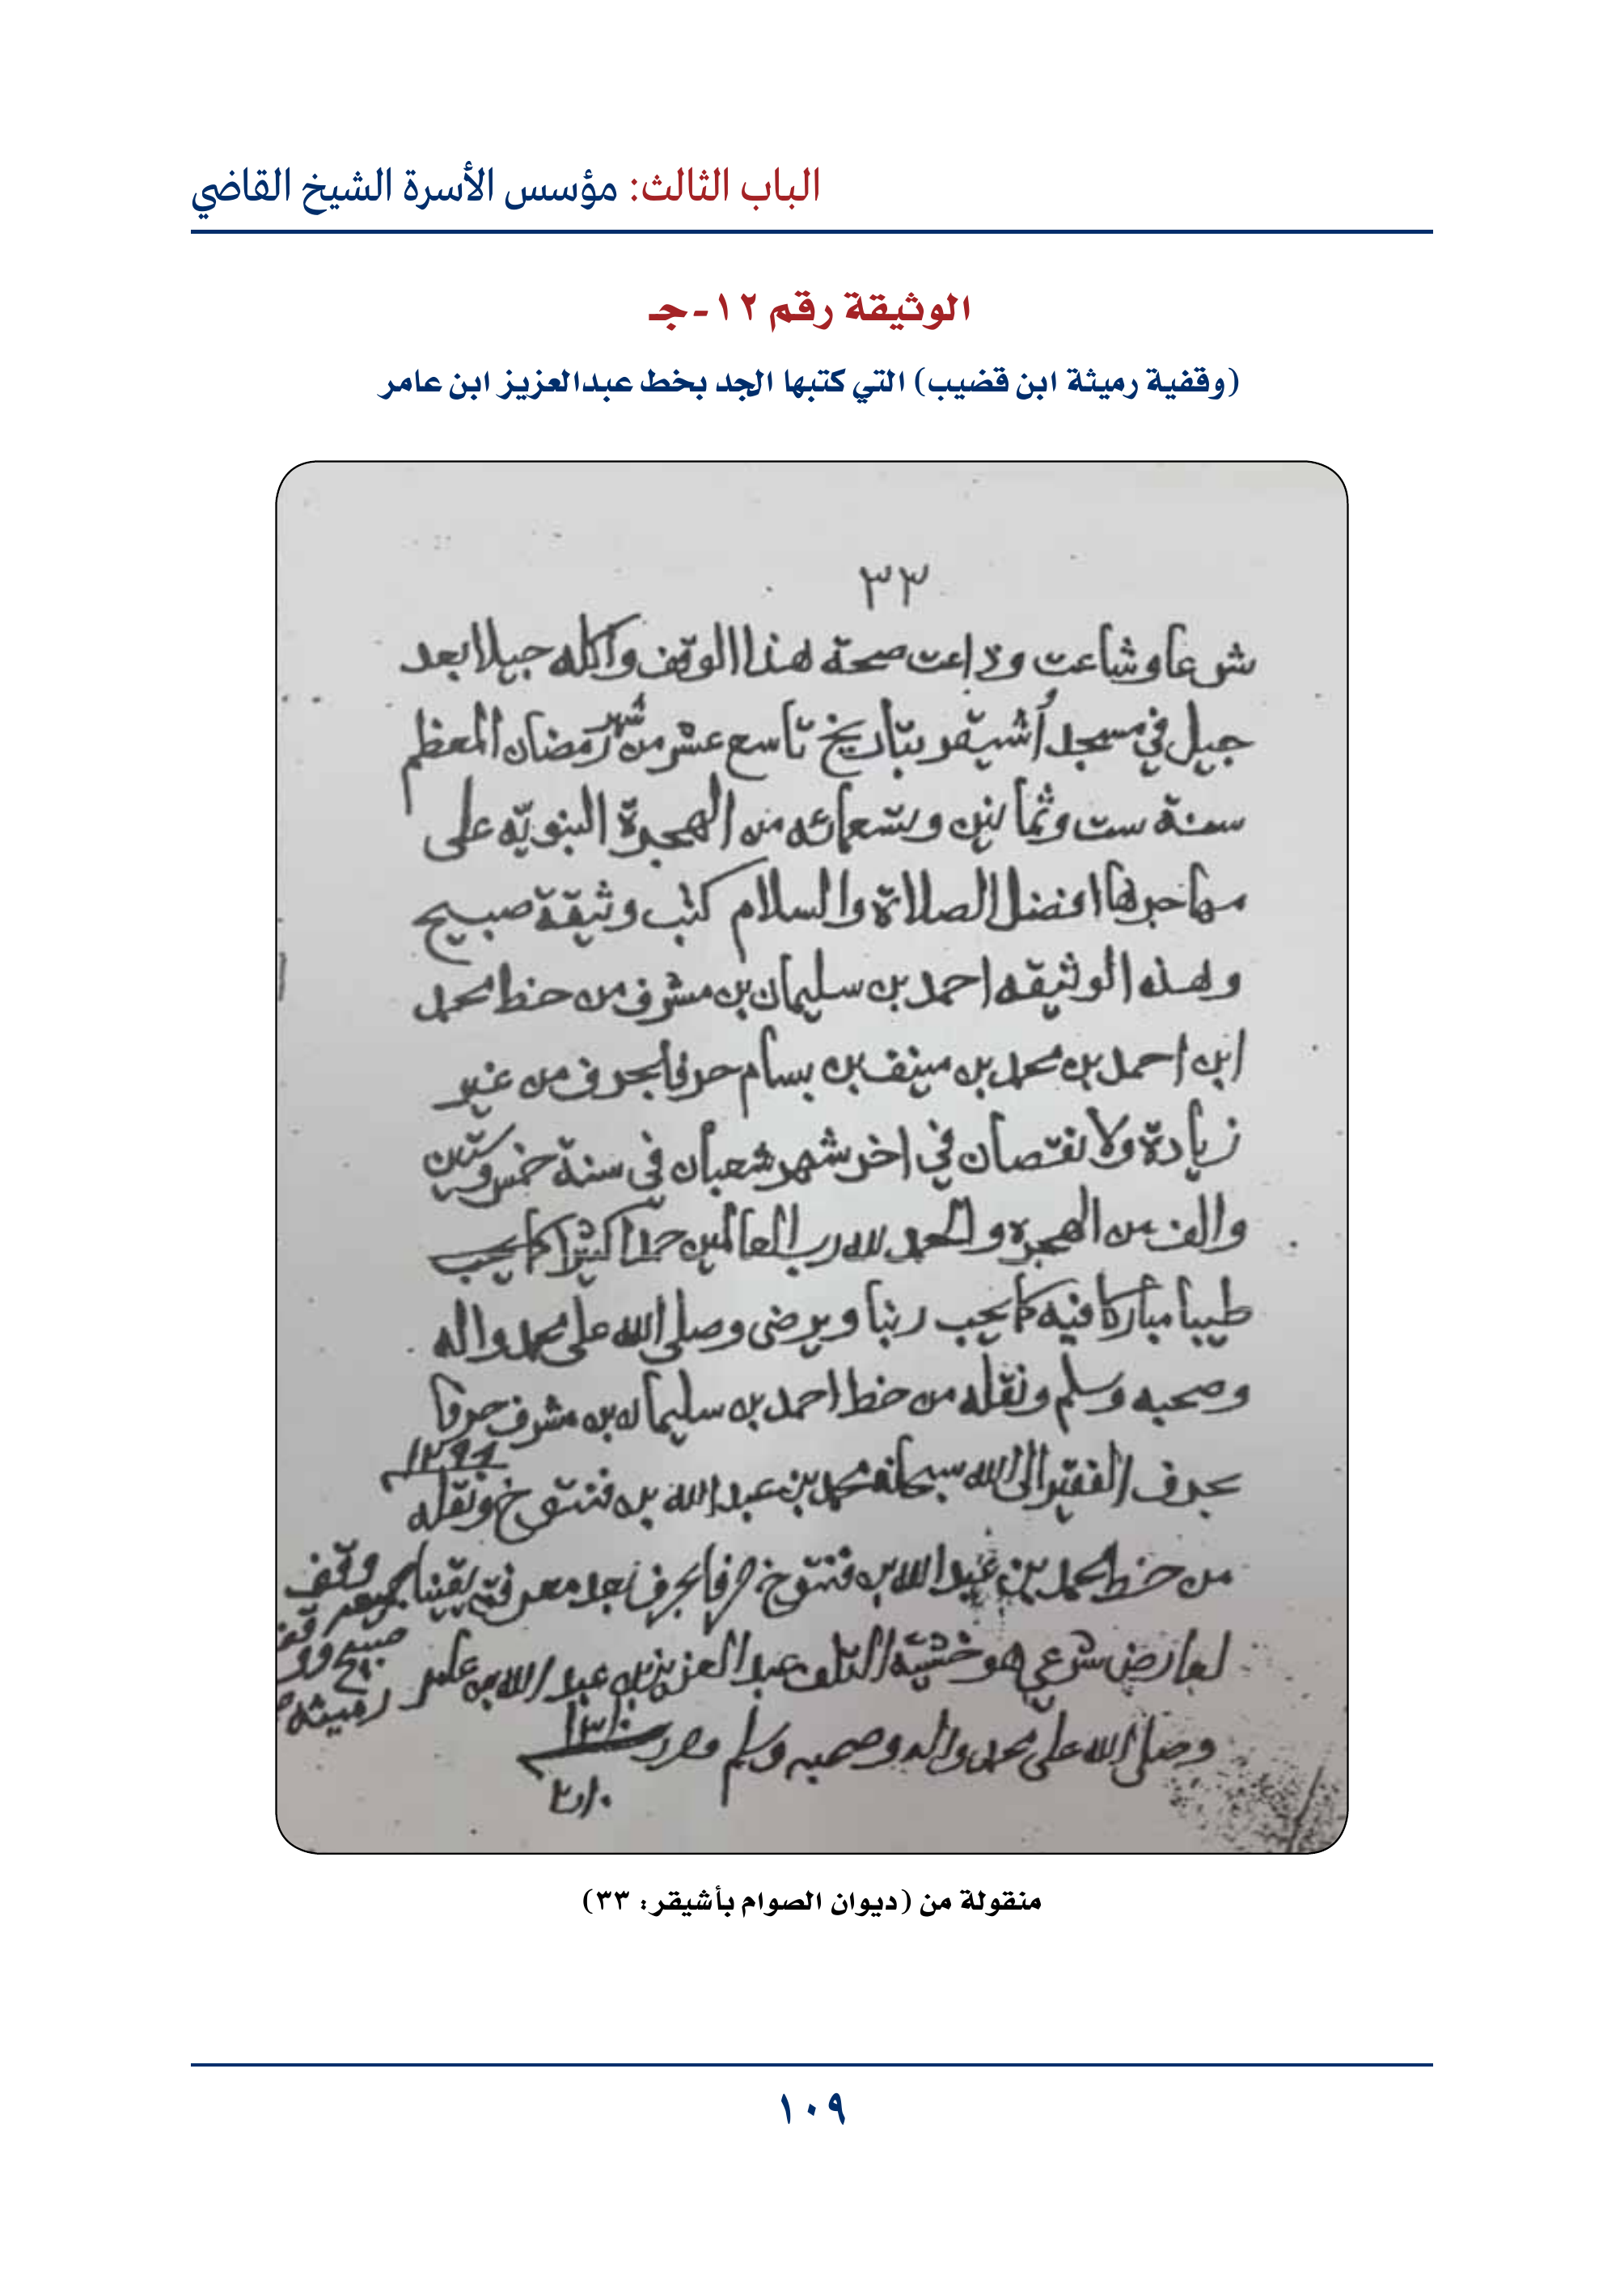 الباب الثالث: مؤسس الأسرة الشيخ القاضي
الوثيقة رقم ١٢-جـ
(وقفية رميثة ابن قضيب) التي كتبها الجد بخط عبدالعزيز ابن عامر
٣٣
شرعا وشاعت وذاعت صحة هذا الوقف وأكله جيلا بعد
جيل في مسجد أشيقر بتاريخ تاسع عشر من شهر رمضان المعظم
سنة ست وثمانين وتسعمائه من الهجرة النبويّه على
مهاجرها افضل الصلاة والسلام كتب وثيقة صبيح
وهذه الوثيقه احمد بن سليمان بن مشرف من خط محمد
ابن احمد بن محمد بن منيف بن بسام حرفا بحرف من غير
زيادة ولا نقصان في اخر شهر شعبان في سنة خمس وستين
والف من الهجره والحمد لله رب العالمين حمدا كثيرا كما يحب
طيبا مباركا فيه كما يحب ربنا ويرضى وصلى الله على محمد واله
وصحبه وسلم ونقله من خط احمد بن سليمان بن مشرف حرفا
بحرف الفقير الى الله سبحانه محمد بن عبد الله بن فنتوخ ونقله
من خط محمد بن عبد الله بن فنتوخ حرفا بحرف بعد معرفته يقينا وقف
لعارض شرعي هو خشية التلف عبد العزيز بن عبد الله بن عامر صبيح رميثه
وصلى الله على محمد واله وصحبه وسلم ١٣١٠
منقولة من (ديوان الصوام بأشيقر: ٣٣)
١٠٩